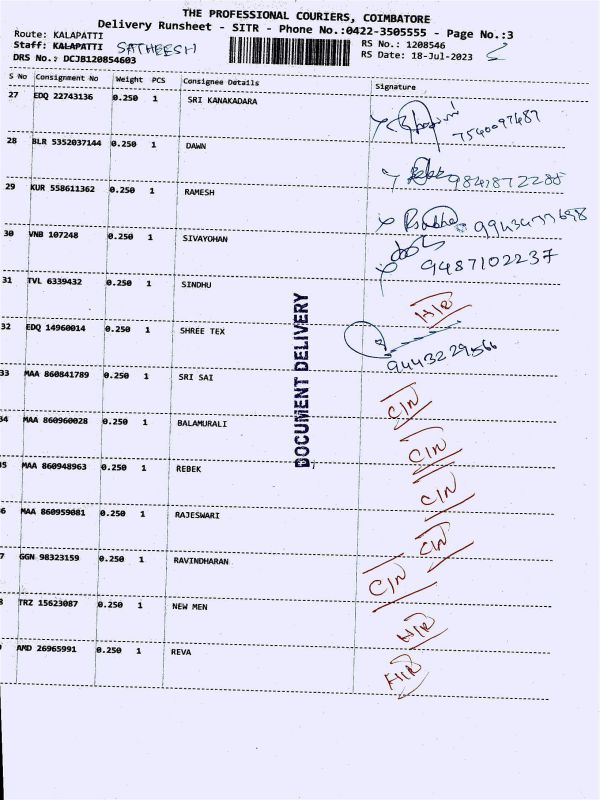 THE PROFESSIONAL COURIERS, COIMBATORE
Delivery Runsheet - SITR - Phone No.:0422-3505555 - Page No.:3
Route: KALAPATTI
Staff: KALAPATTI SATHEESH RS No.: 1208546
DRS No.: DCJB120854603 RS Date: 18-Jul-2023
S No Consignment No Weight PCS Consignee Details Signature
27 EDQ 22743136 0.250 1 SRI KANAKADARA 7540097487
28 BLR 5352037144 0.250 1 DAWN 9841872285
29 KUR 558611362 0.250 1 RAMESH
30 VNB 107248 0.250 1 SIVAYOHAN 9487102237
31 TVL 6339432 0.250 1 SINDHU
32 EDQ 14960014 0.250 1 SHREE TEX 9443229566
33 MAA 860841789 0.250 1 SRI SAI C/N
34 MAA 860960028 0.250 1 BALAMURALI C/N
5 MAA 860948963 0.250 1 REBEK C/N
6 MAA 860959081 0.250 1 RAJESWARI C/N
7 GGN 98323159 0.250 1 RAVINDHARAN C/N
TRZ 15623087 0.250 1 NEW MEN
AMD 26965991 0.250 1 REVA
DOCUMENT DELIVERY